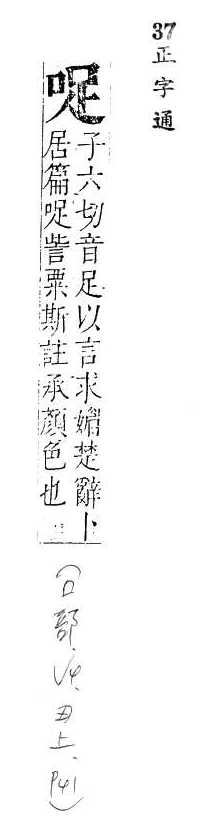 37正字通
哫
子六切音足以言求媚楚辭卜
居篇哫訾粟斯註承顏色也
(口部、V4、丑上、P41)